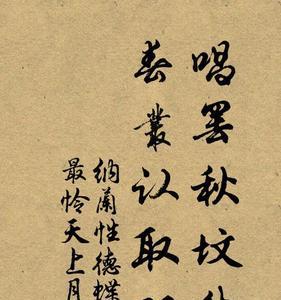 唱罢秋坟
春丛认取
纳兰性德蝶
最怜天上月